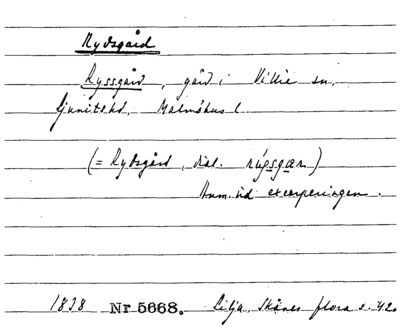 Rydsgård
Ryssgård, gård i Villie sn,
Ljunits hd, Malmöhus l.
(= Rydsgård, dial. rýsgær)
Anm. vid excerperingen.
1838 Nr 5668. Lilja, Skånes flora s. 42.